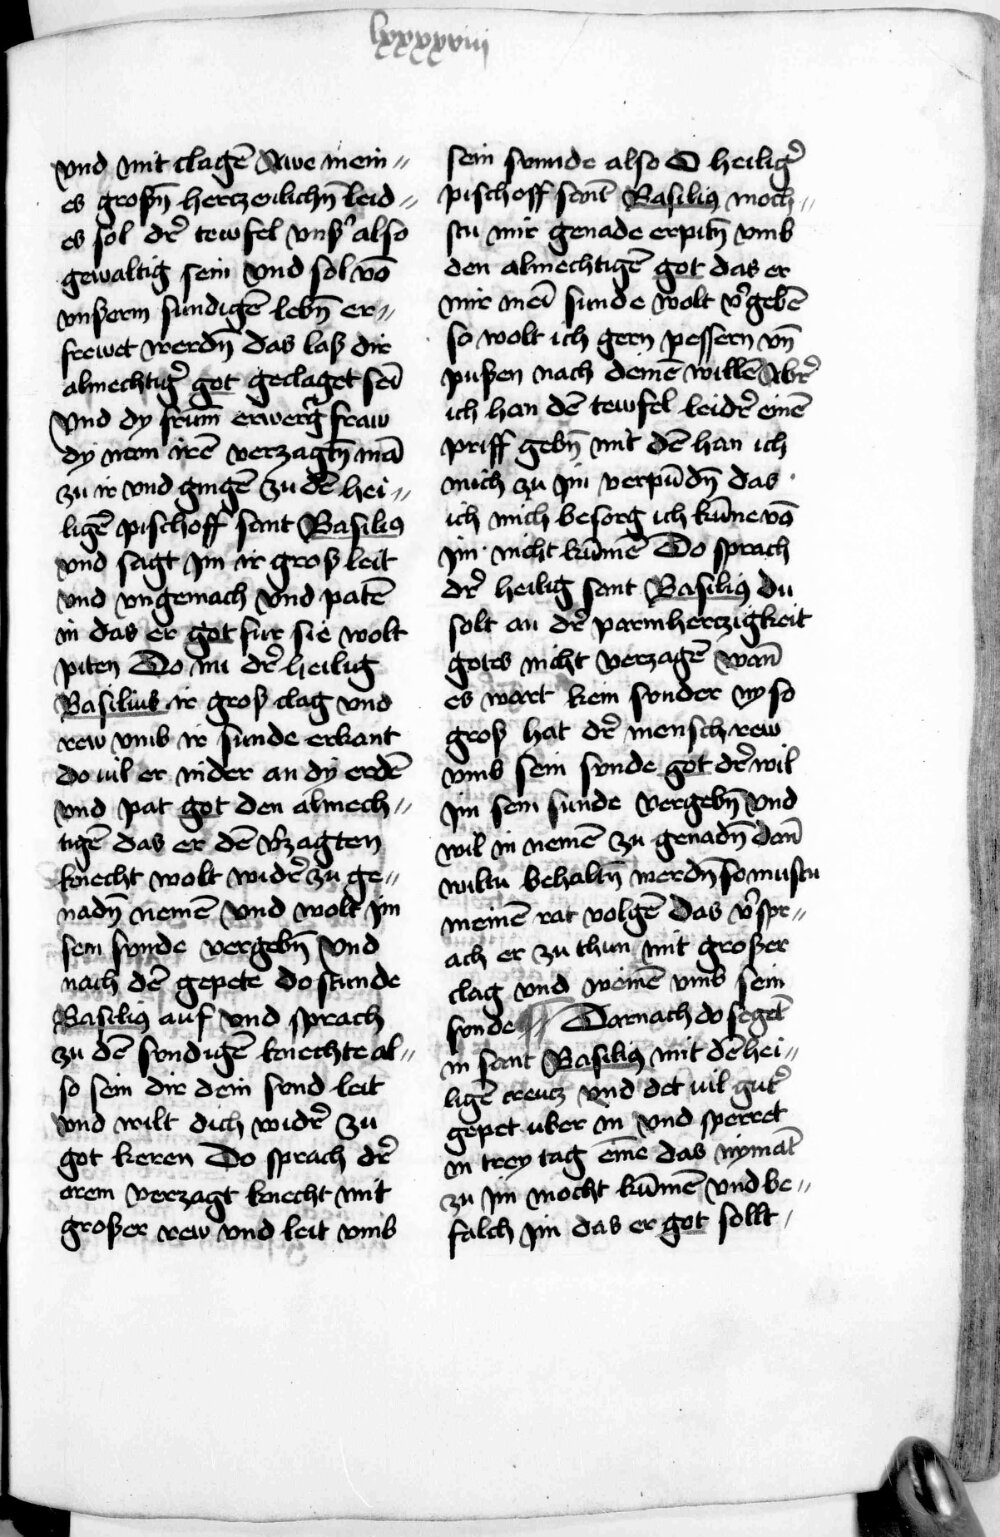 lxxxxviii
vnd mit clagē Awe mein〃
es groſſn̄ hertzenlichn̄ leid〃
es ſol dr̄ tewfel vnſ' alſo
gewaltig ſein vnd ſol vō
vnſerm ſundigē lebn̄ er〃
frewet werdn̄ das laſ dir
almechtig' got geclaget ſeī
Vnd dy frūm erwerg fraw
dy nam irē verzagtn̄ mā
zu ir vnd gingē zu dē hei〃
ligē piſchoff ſant Baſilius
vnd ſagt Jm ir groſ leit
vnd vngemach vnd patē
in das er got fur ſie wolt
piten Do nu dr̄ heilig
Baſilius ir groſ clag vnd
rew vmb ir ſunde erkant
do vil er nider an dy erdē
vnd pat got den almech〃
tigē das er dē v'zagten
knecht wolt widr̄ zu ge〃
nadn̄ nemē vnd wolt jm
ſein ſunde vergebn̄ vnd
nach dē gepete do ſtunde
Baſilius auf vnd ſprach
zu dē ſundigē knechte al〃
ſo ſein dir dein ſund leit
vnd wilt dich widr̄ zu
got keren Do ſprach dr̄
arem verzagt knecht mit
groſſer rew vnd leit vmb
ſein ſunnde alſo O heilig'
piſchoff ſant Baſilius moch〃
ſtu mir genade erpitn̄ vmb
den almechtigē got das er
mir meī ſunde wolt v'gebē
ſo wolt ich gern peſſern vn̄
puſſen nach deinē willē Abr̄
ich han dē tewfel leidr̄ einē
priff gebn̄ mit dē han ich
mich zu jm verpūdn̄ das
ich mich beſorg ich kūne vō
jm nicht kūmē Do ſprach
dr̄ heilig ſant Baſilius du
ſolt an dr̄ parmhertzigkeit
gotes nicht verzagē wan̄
es wart kein ſunder ny ſo
groſ hat dr̄ menſch rew
vmb ſein ſunde got dr̄ wil
jm ſein ſunde vergebn̄ vnd
wil in nemē zu genadn̄ dan̄
wiltu behaltn̄ werdn̄ ſo muſtu
meinē rat volgē das v'ſpr〃
ach er zu thun mit groſſer
clag vnd weinē vmb ſein
ſunde Darnach do ſegēt
in ſant Baſilius mit dē hei〃
ligē creutz vnd det vil gut'
gepet uber in vnd ſperret
in trey tag eine das nymāt
zu jm mocht kūmē vnd be〃
falch jm das er got ſollt